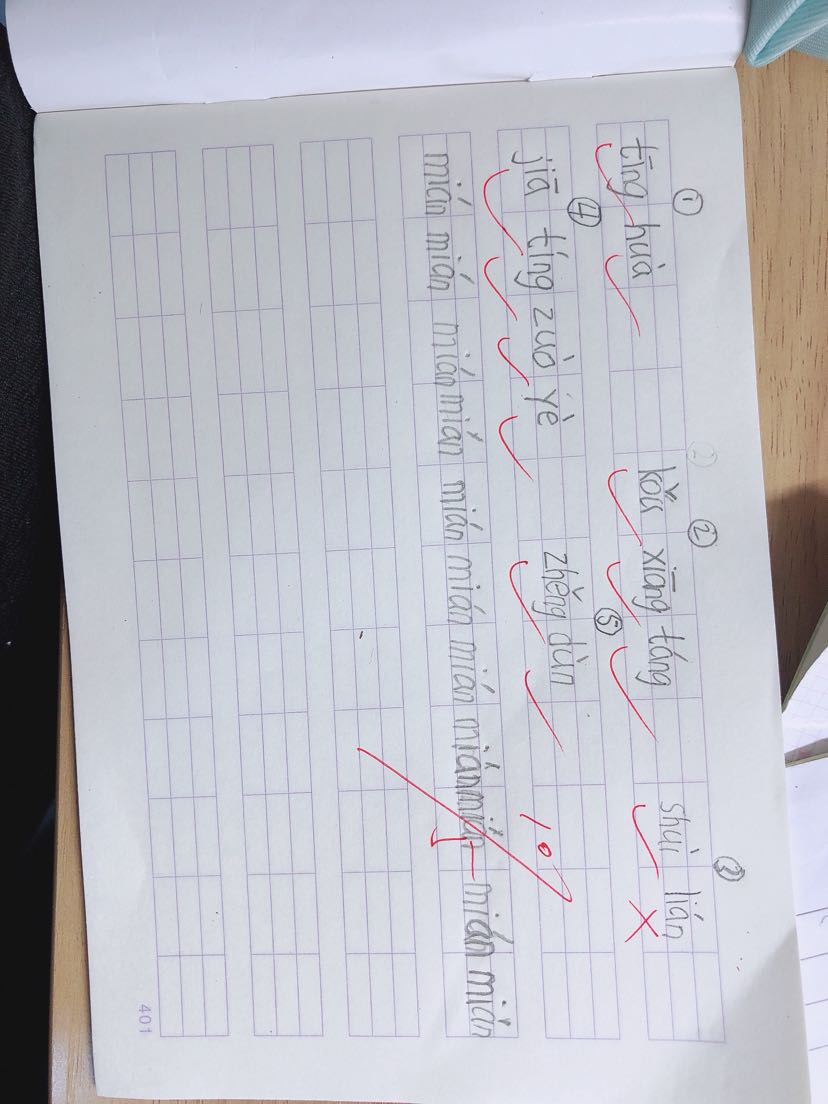 ① ② ③
tīng huà kǒu xiāng táng shuì lián
④ ⑤
jiā tíng zuò yè zhěng dùn
mián mián mián mián mián mián mián mián mián mián mián
401